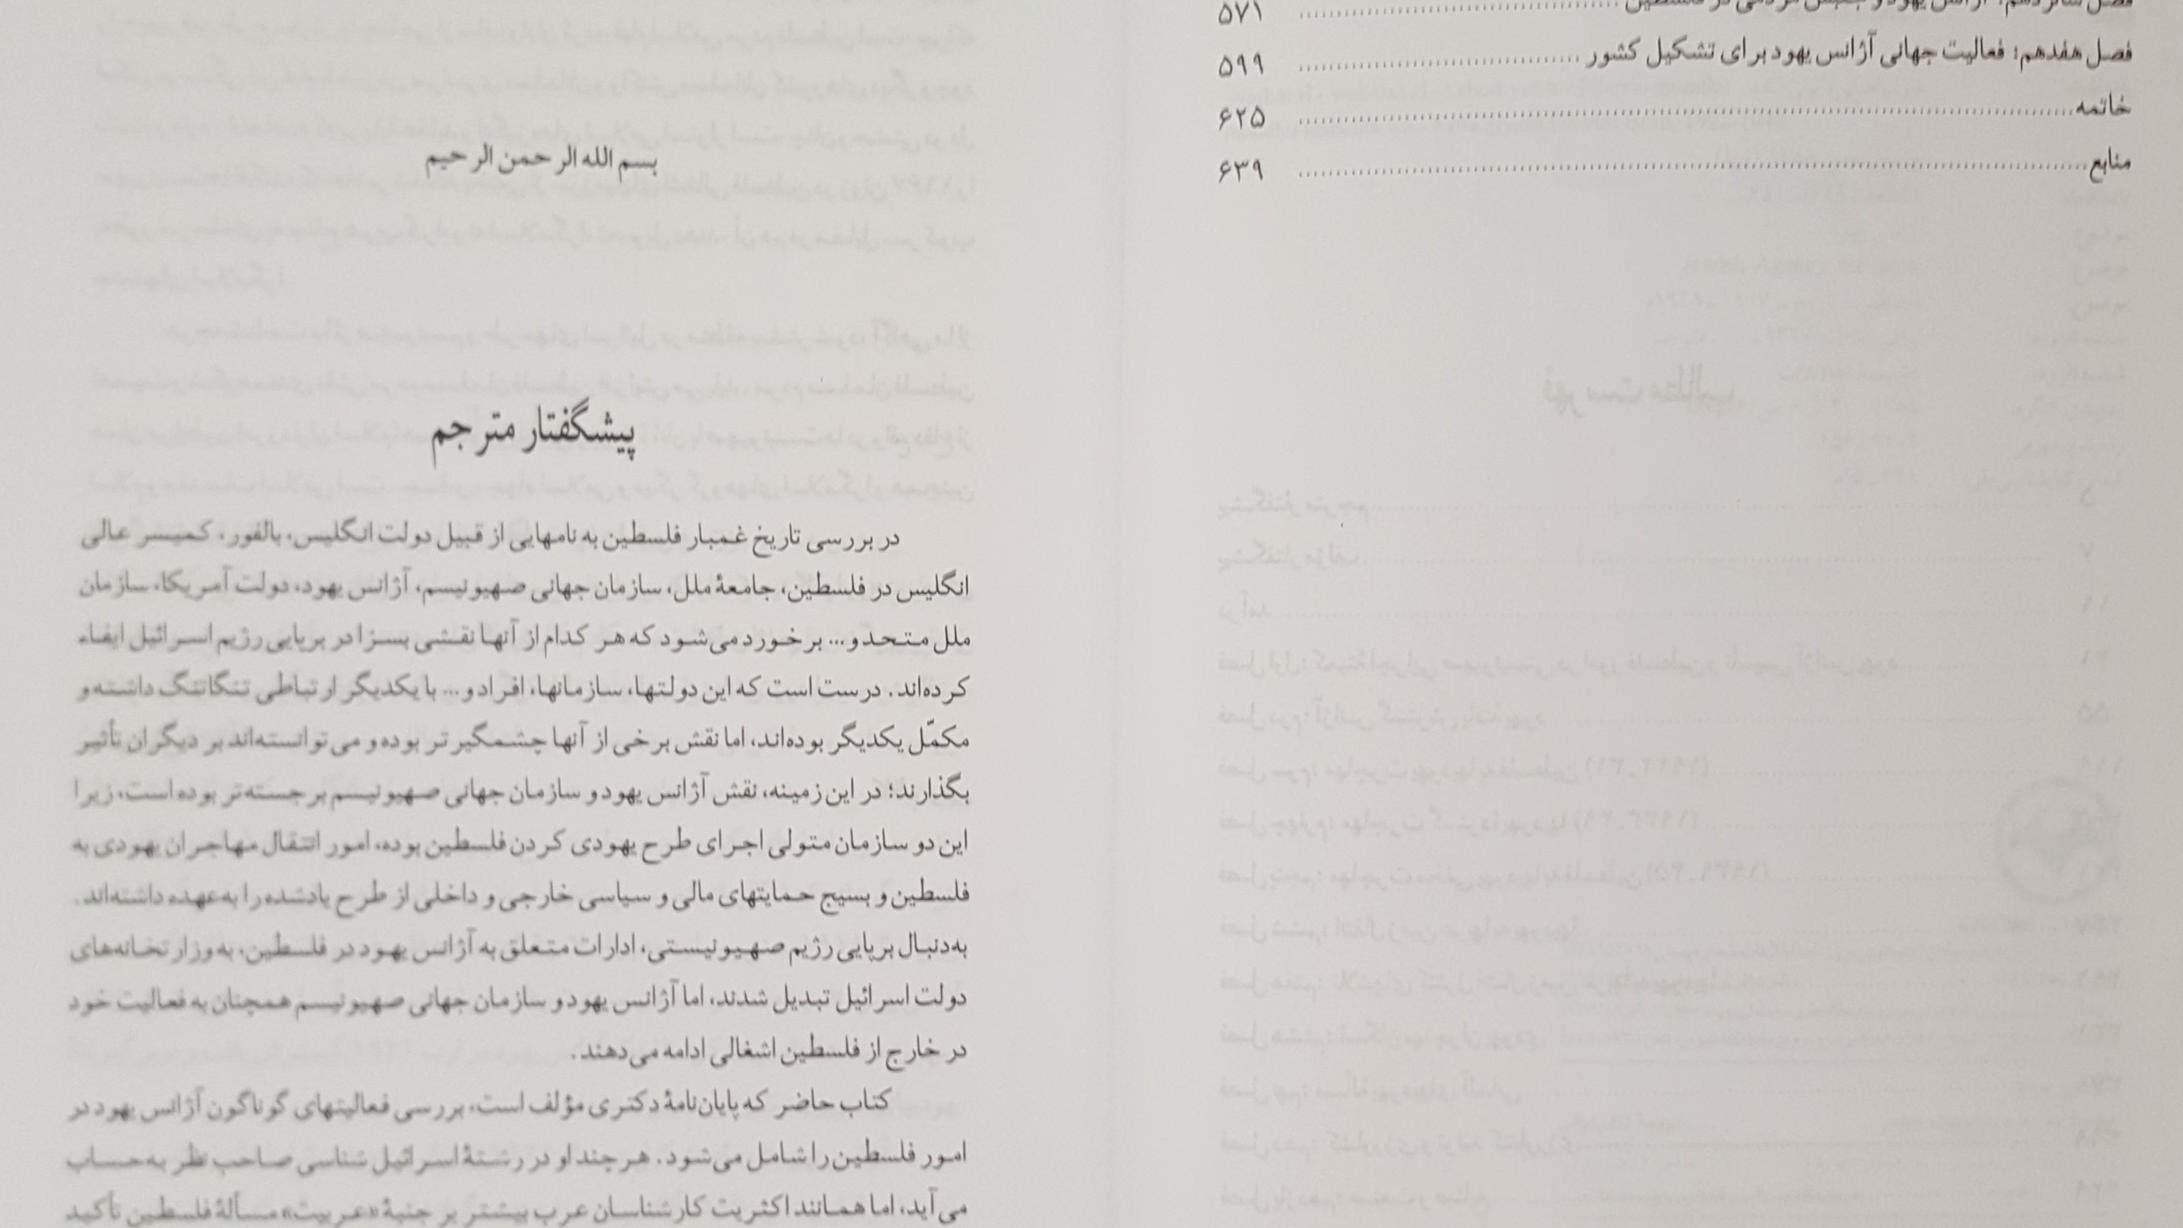 فصل شانزدهم: آژانس یهود و جنبش مردمی در فلسطین ........ ۵۷۱
فصل هفدهم: فعالیت جهانی آژانس یهود برای تشکیل کشور ........ ۵۹۹
خاتمه ........ ۶۲۵
منابع ........ ۶۳۹
بسم الله الرحمن الرحیم
پیشگفتار مترجم
در بررسی تاریخ غمبار فلسطین به نامهایی از قبیل دولت انگلیس، بالفور، کمیسر عالی
انگلیس در فلسطین، جامعهٔ ملل، سازمان جهانی صهیونیسم، آژانس یهود، دولت آمریکا، سازمان
ملل متحد و... برخورد می‌شود که هر کدام از آنها نقشی بسزا در برپایی رژیم اسرائیل ایفاء
کرده‌اند. درست است که این دولتها، سازمانها، افراد و... با یکدیگر ارتباطی تنگاتنگ داشته و
مکمّل یکدیگر بوده‌اند، اما نقش برخی از آنها چشمگیرتر بوده و می‌توانسته‌اند بر دیگران تأثیر
بگذارند؛ در این زمینه، نقش آژانس یهود و سازمان جهانی صهیونیسم برجسته‌تر بوده است، زیرا
این دو سازمان متولی اجرای طرح یهودی کردن فلسطین بوده، امور انتقال مهاجران یهودی به
فلسطین و بسیج حمایتهای مالی و سیاسی خارجی و داخلی از طرح یادشده را به‌عهده داشته‌اند.
به‌دنبال برپایی رژیم صهیونیستی، ادارات متعلق به آژانس یهود در فلسطین، به وزارتخانه‌های
دولت اسرائیل تبدیل شدند، اما آژانس یهود و سازمان جهانی صهیونیسم همچنان به فعالیت خود
در خارج از فلسطین اشغالی ادامه می‌دهند.
کتاب حاضر که پایان‌نامهٔ دکتری مؤلف است، بررسی فعالیتهای گوناگون آژانس یهود در
امور فلسطین را شامل می‌شود. هر چند او در رشتهٔ اسرائیل شناسی صاحب نظر به حساب
می‌آید، اما همانند اکثریت کارشناسان عرب بیشتر بر جنبهٔ «عربیت» مسألهٔ فلسطین تأکید